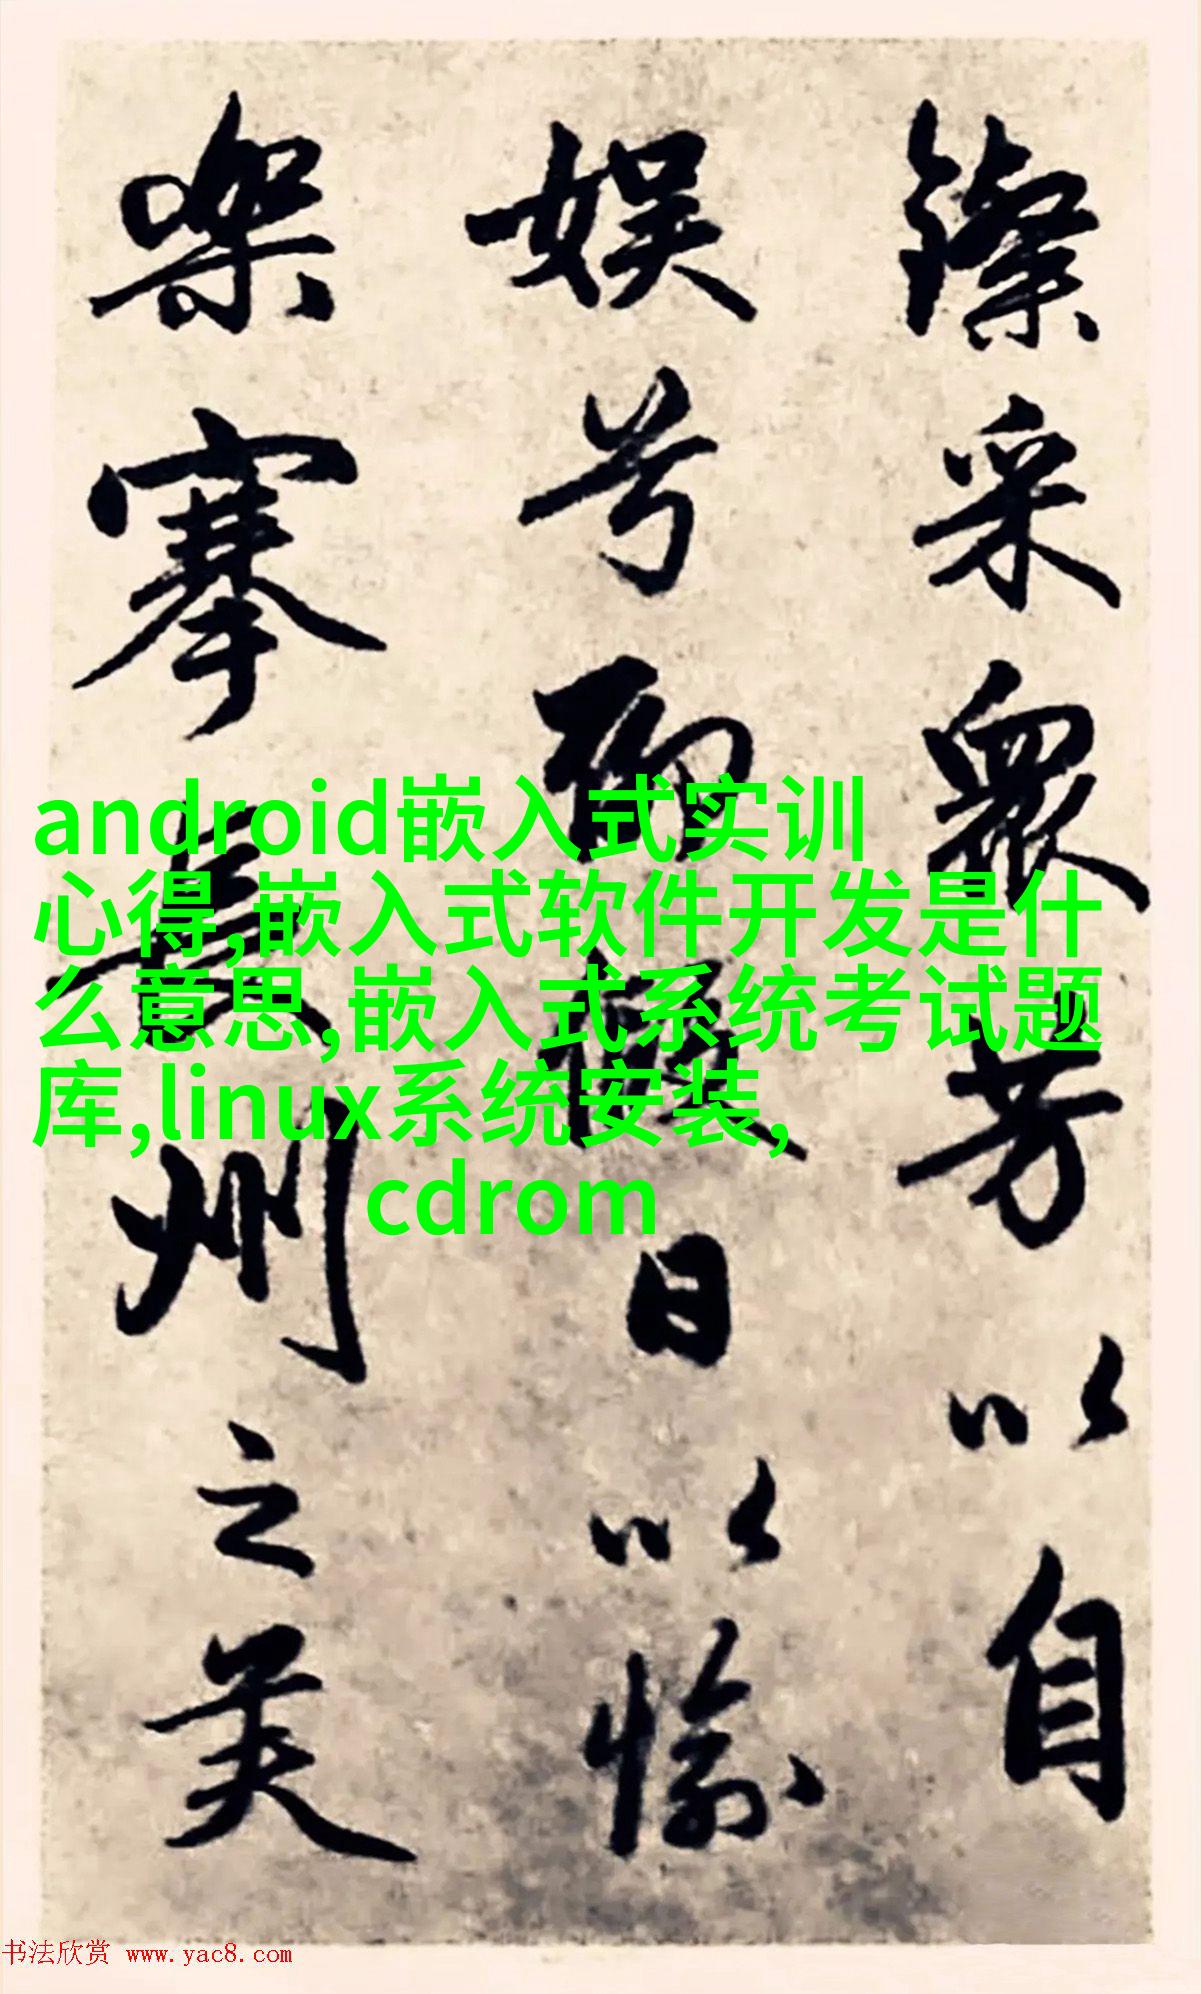 采眾芳以自
娛兮聊假日以愉
樂搴長州之美
android嵌入式实训
心得,嵌入式软件开发是什
么意思,嵌入式系统考试题
库,linux系统安装,
cdrom
书法欣赏 www.yac8.com